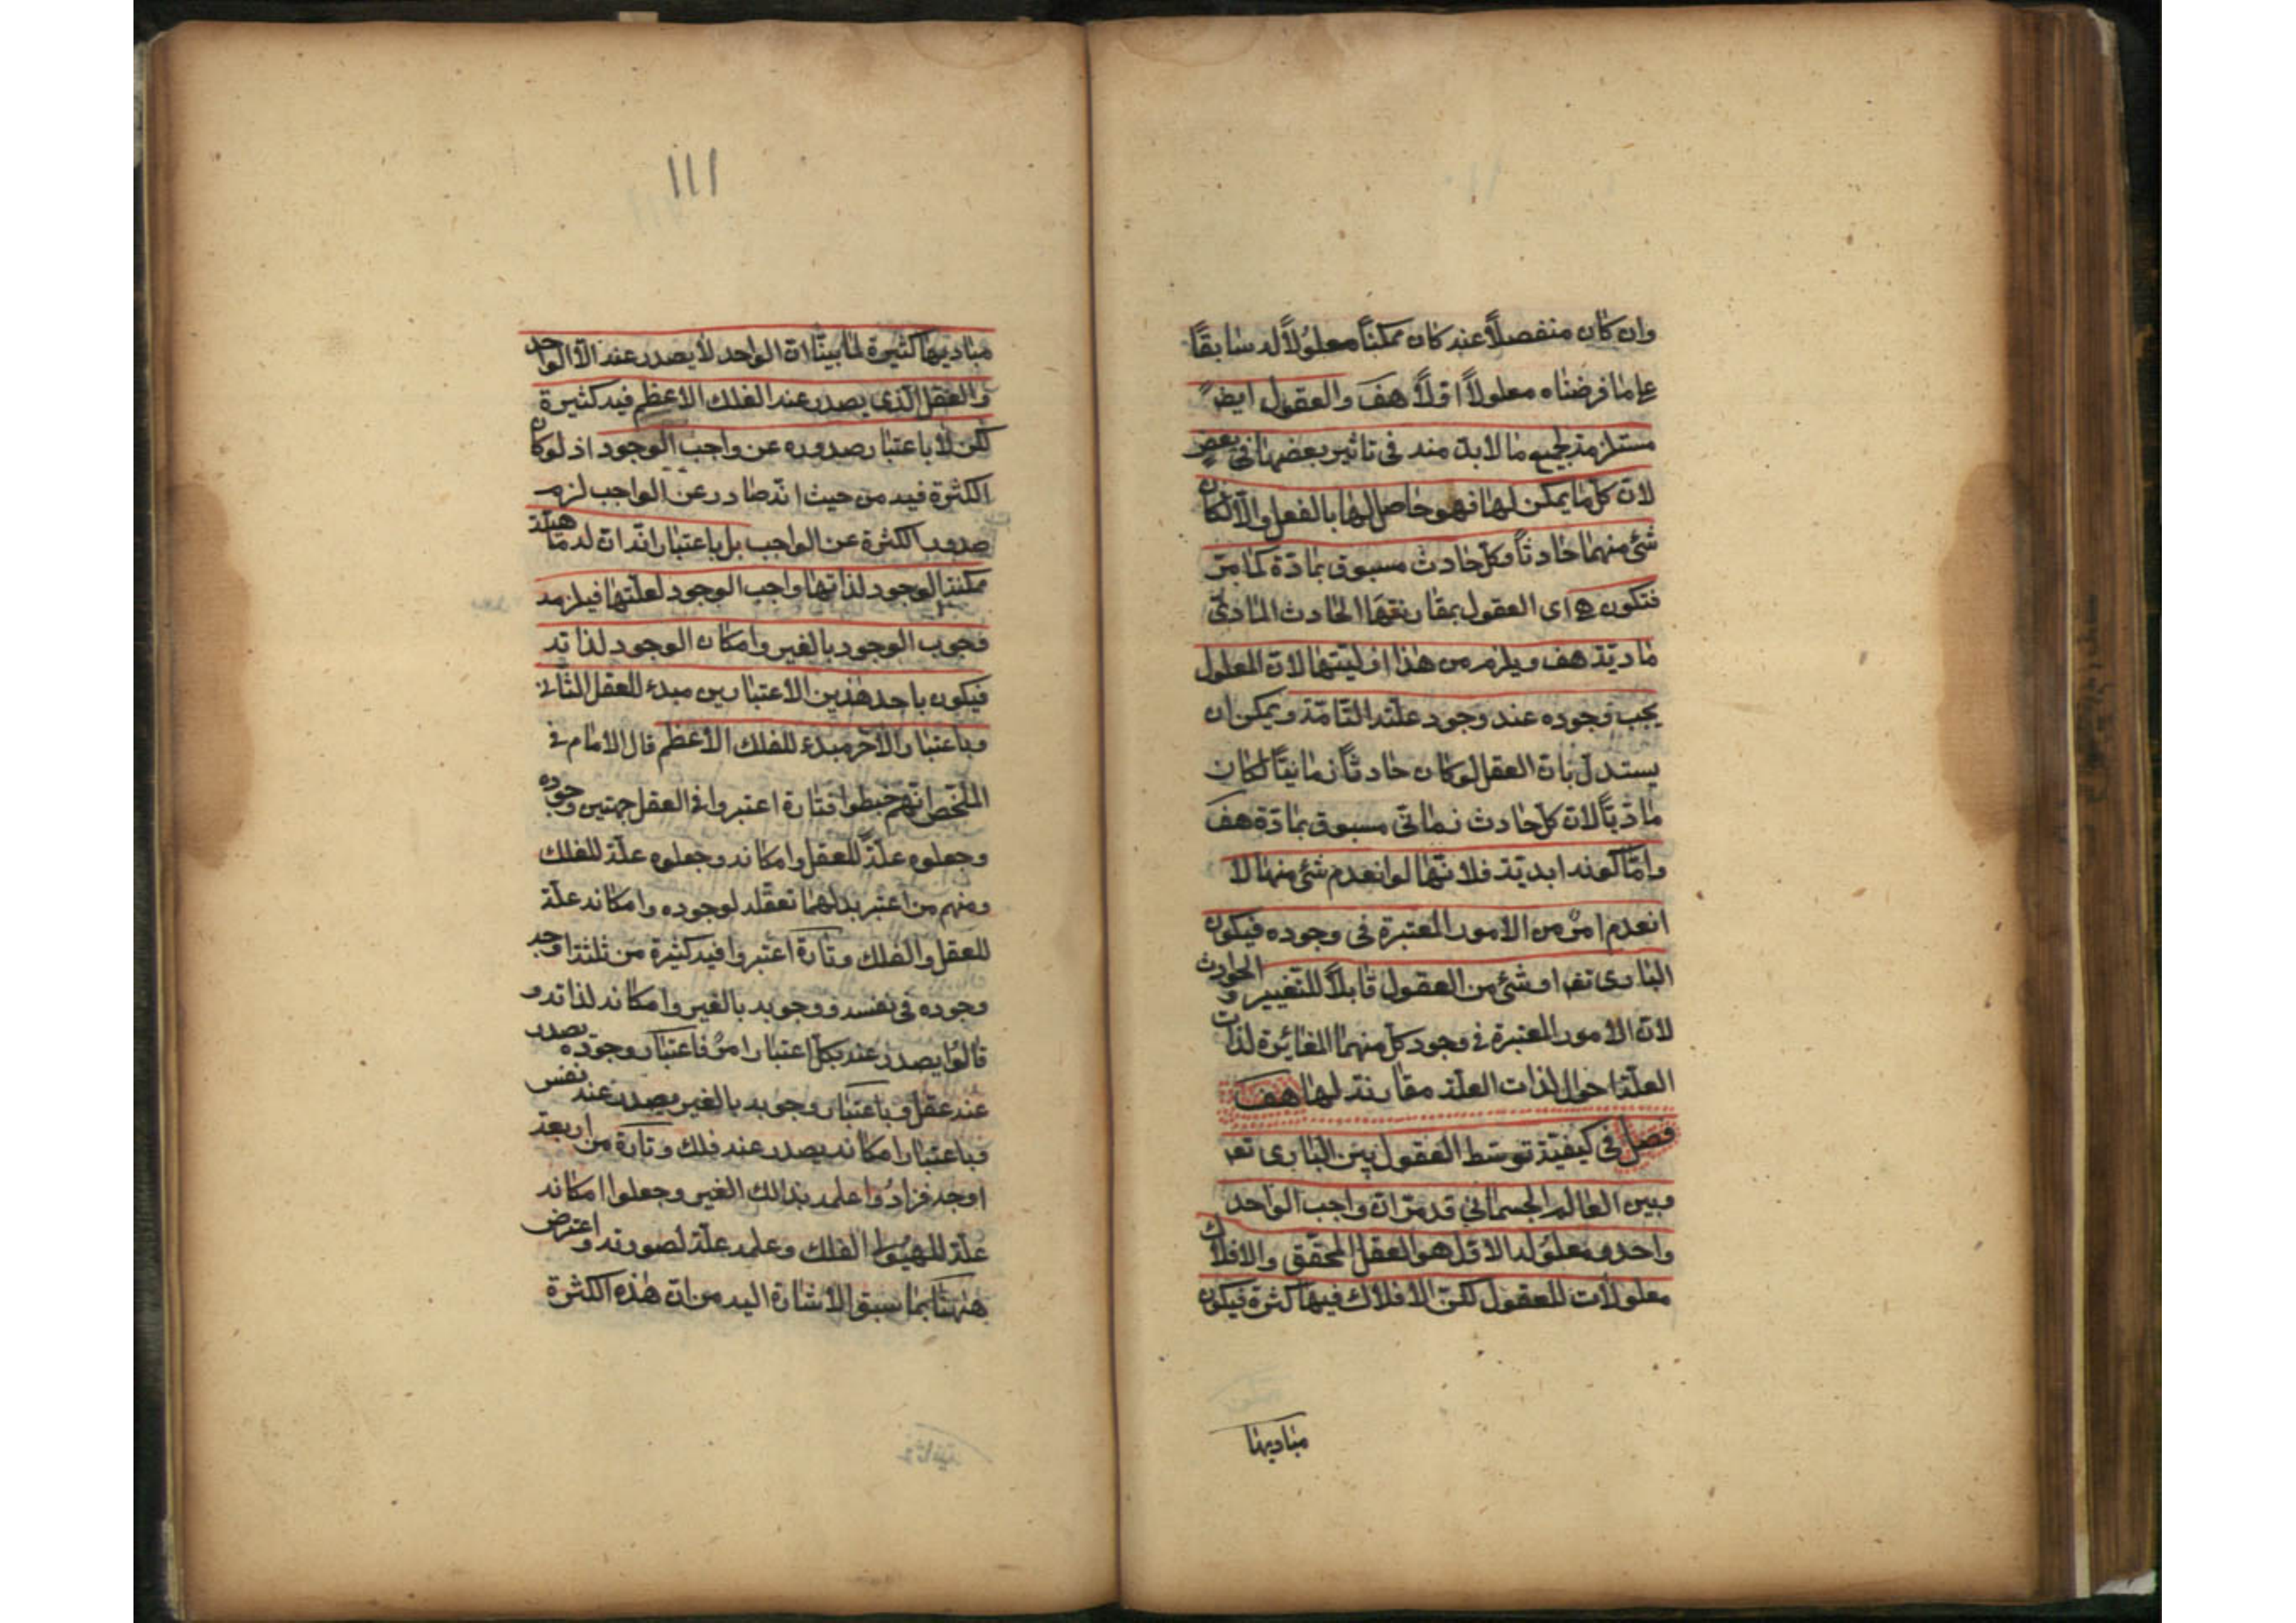 وان كان منفصلاً عنه كان ممكناً معلولاً له سابقاً
على ما فرضناه معلولاً اوّلاً هف والعقول ايضً
مستلزمة لجميع ما لا بدّ منه فى تأثير بعضها فى بعض
لانّ كلّ ما يمكن لها فهو حاصل لها بالفعل والّا لكان
شئ منهما حادثاً وكلّ حادث مسبوق بمادّة كما مرّ
فتكون هى اى العقول بمقارنتها الحادث المادىّ
ماديّة هف ويلزم من هذا ازليتها لانّ المعلول
يجب وجوده عند وجود علّته التامّة ويمكن ان
يستدلّ بانّ العقل لو كان حادثاً زمانيّاً لكان
مادّيّاً لانّ كلّ حادث زمانىّ مسبوق بمادّة هف
وامّا كونه ابديّة فلانّها لو انعدم شئ منها لا
انعدم امرٌ من الامور المعتبرة فى وجوده فيكون
البارى تع او شئ من العقول قابلاً للتغيير والحوادث
لانّ الامور المعتبرة فى وجود كلّ منهما المغائرة لذات
العلّة احوال لذات العلّة مقارنة لها هف
فصل فى كيفيّة توسّط العقول بين البارى تع
وبين العالم الجسمانى قد مرّ انّ واجب الواحد
واحد ومعلوله الاوّل هو العقل المحقّق والافلاك
معلولات للعقول لكنّ الافلاك فيها كثرة فيكون
مباديها
١١١
مباديها كثيرة لما بيّنا انّ الواحد لا يصدر عنه الّا الواحد
والعقل الّذى يصدر عنه الفلك الاعظم فيه كثيرة
لكن لا باعتبار صدوره عن واجب الوجود اذ لو كان
الكثرة فيه من حيث انّه صادر عن الواجب لزم
صدور الكثرة عن الواجب بل باعتبار انّ له ماهيّة
ممكنة الوجود لذاتها واجب الوجود لعلّتها فيلزمه
وجوب الوجود بالغير وامكان الوجود لذاته
فيكون باحد هذين الاعتبارين مبدء للعقل الثانى
وباعتبار الآخر مبدء للفلك الاعظم قال الامام فى
الملخّص انّهم خبطوا فتارة اعتبروا فى العقل جهتين وجوده
وجعلوه علّة للعقل وامكانه وجعلوه علّة للفلك
ومنهم من اعتبر بدلهما تعقّله لوجوده وامكانه علّة
للعقل والفلك وتارة اعتبروا فيه كثيرة من ثلثة اوجه
وجوده فى نفسه ووجوبه بالغير وامكانه لذاته و
قالوا يصدر عنه بكلّ اعتبار امرٌ فاعتبار وجوده يصدر
عنه عقل وباعتبار وجوبه بالغير يصدر عنه نفس
وباعتبار امكانه يصدر عنه فلك وتارة من اربعة
اوجه فزادُوا علمه بذالك الغير وجعلوا امكانه
علّة للهيولى الفلك وعلمه علّة لصورته واعترض
ههنا بما سبق الاشارة اليه من انّ هذه الكثرة